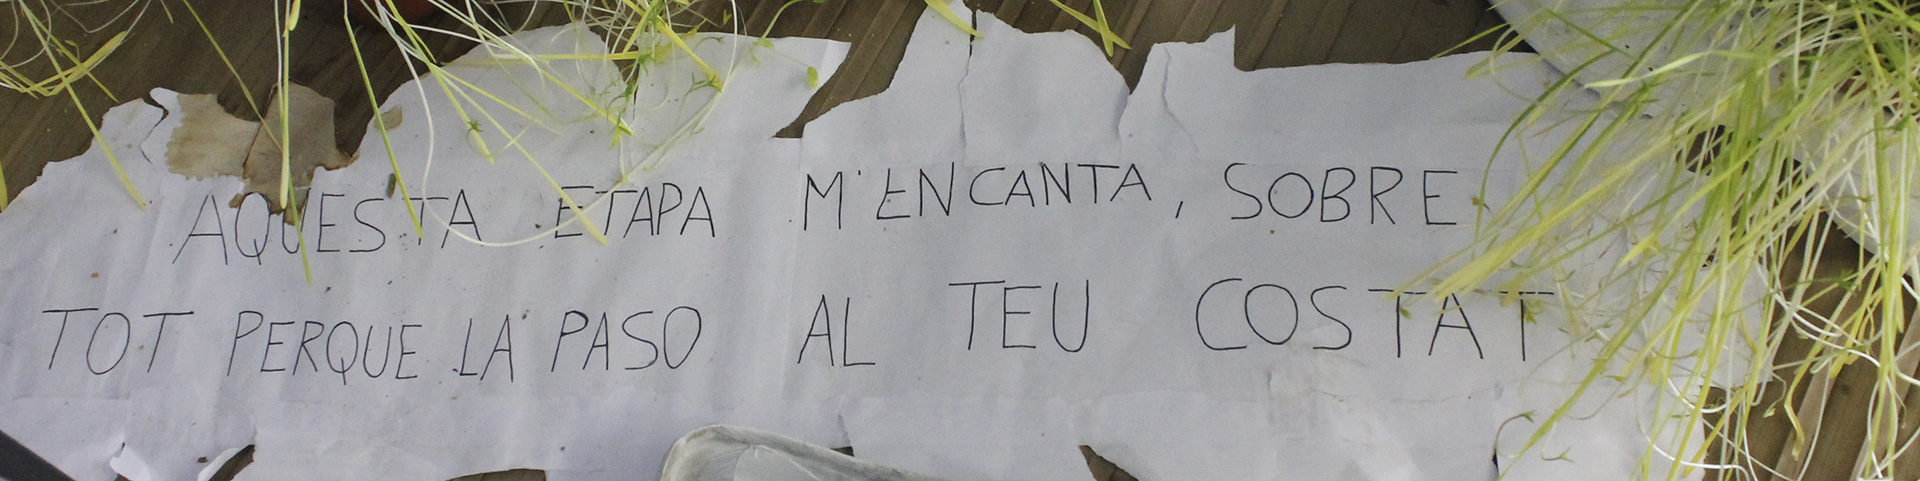 AQUESTA ETAPA M'ENCANTA, SOBRE
TOT PERQUE LA PASO AL TEU COSTAT